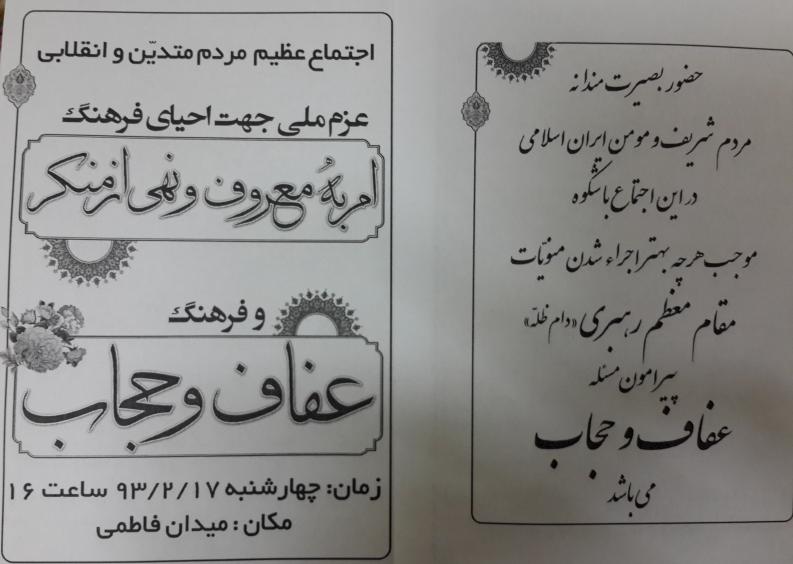 حضور بصیرت مندانه
مردم شریف و مومن ایران اسلامی
در این اجتماع باشکوه
موجب هرچه بهتر اجراء شدن منویّات
مقام معظم رهبری «دام ظلّه»
پیرامون مسئله
عفاف و حجاب
می باشد
اجتماع عظیم مردم متدیّن و انقلابی
عزم ملی جهت احیای فرهنگ
امر به معروف و نهی از منکر
و فرهنگ
عفاف و حجاب
زمان: چهارشنبه ۹۳/۲/۱۷ ساعت ۱۶
مکان : میدان فاطمی